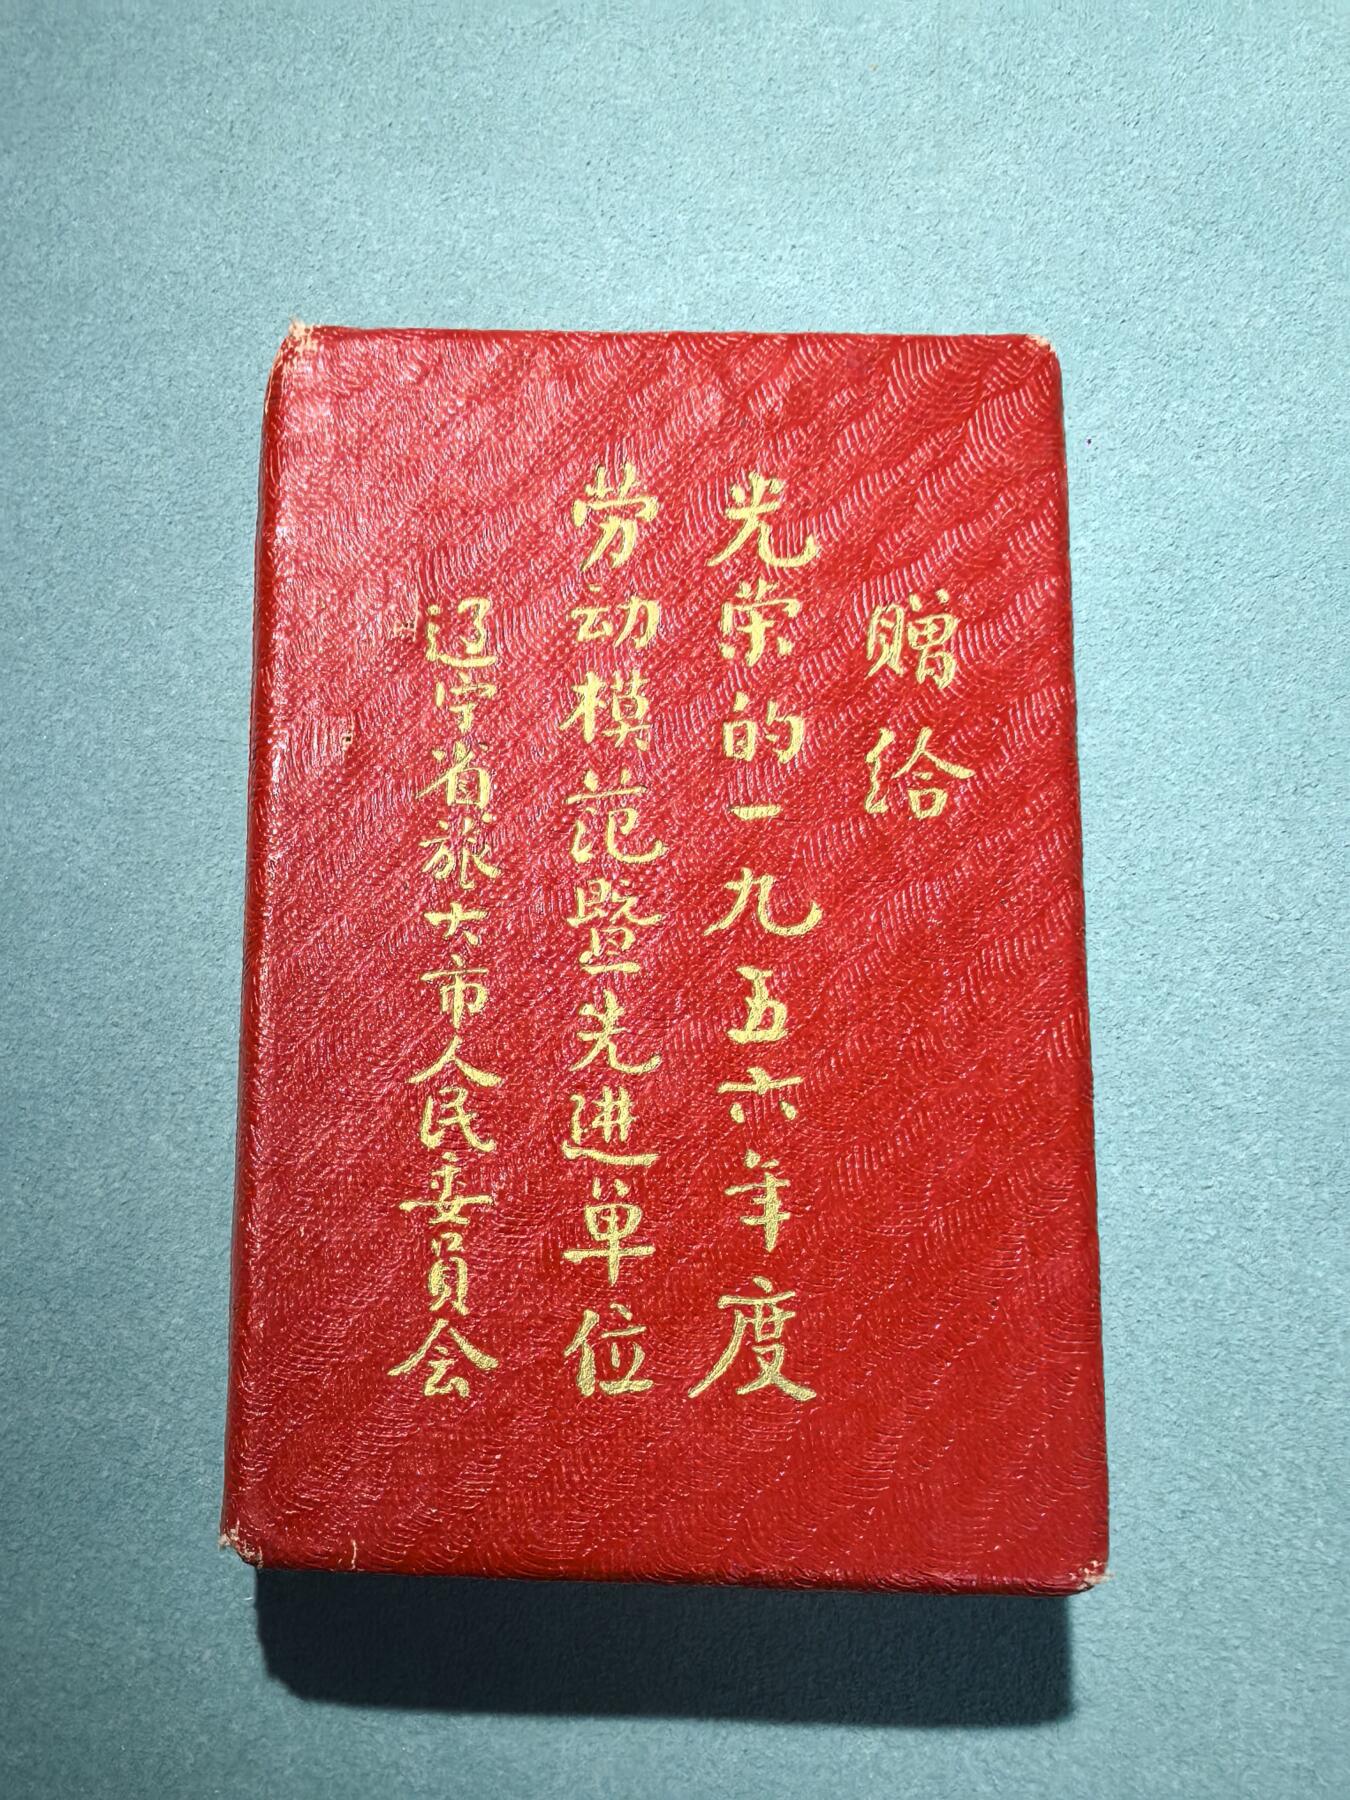 赠给
光荣的一九五六年度
劳动模范暨先进单位
辽宁省旅大市人民委员会